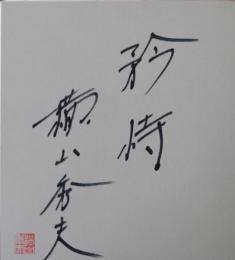 矜恃
横山秀夫